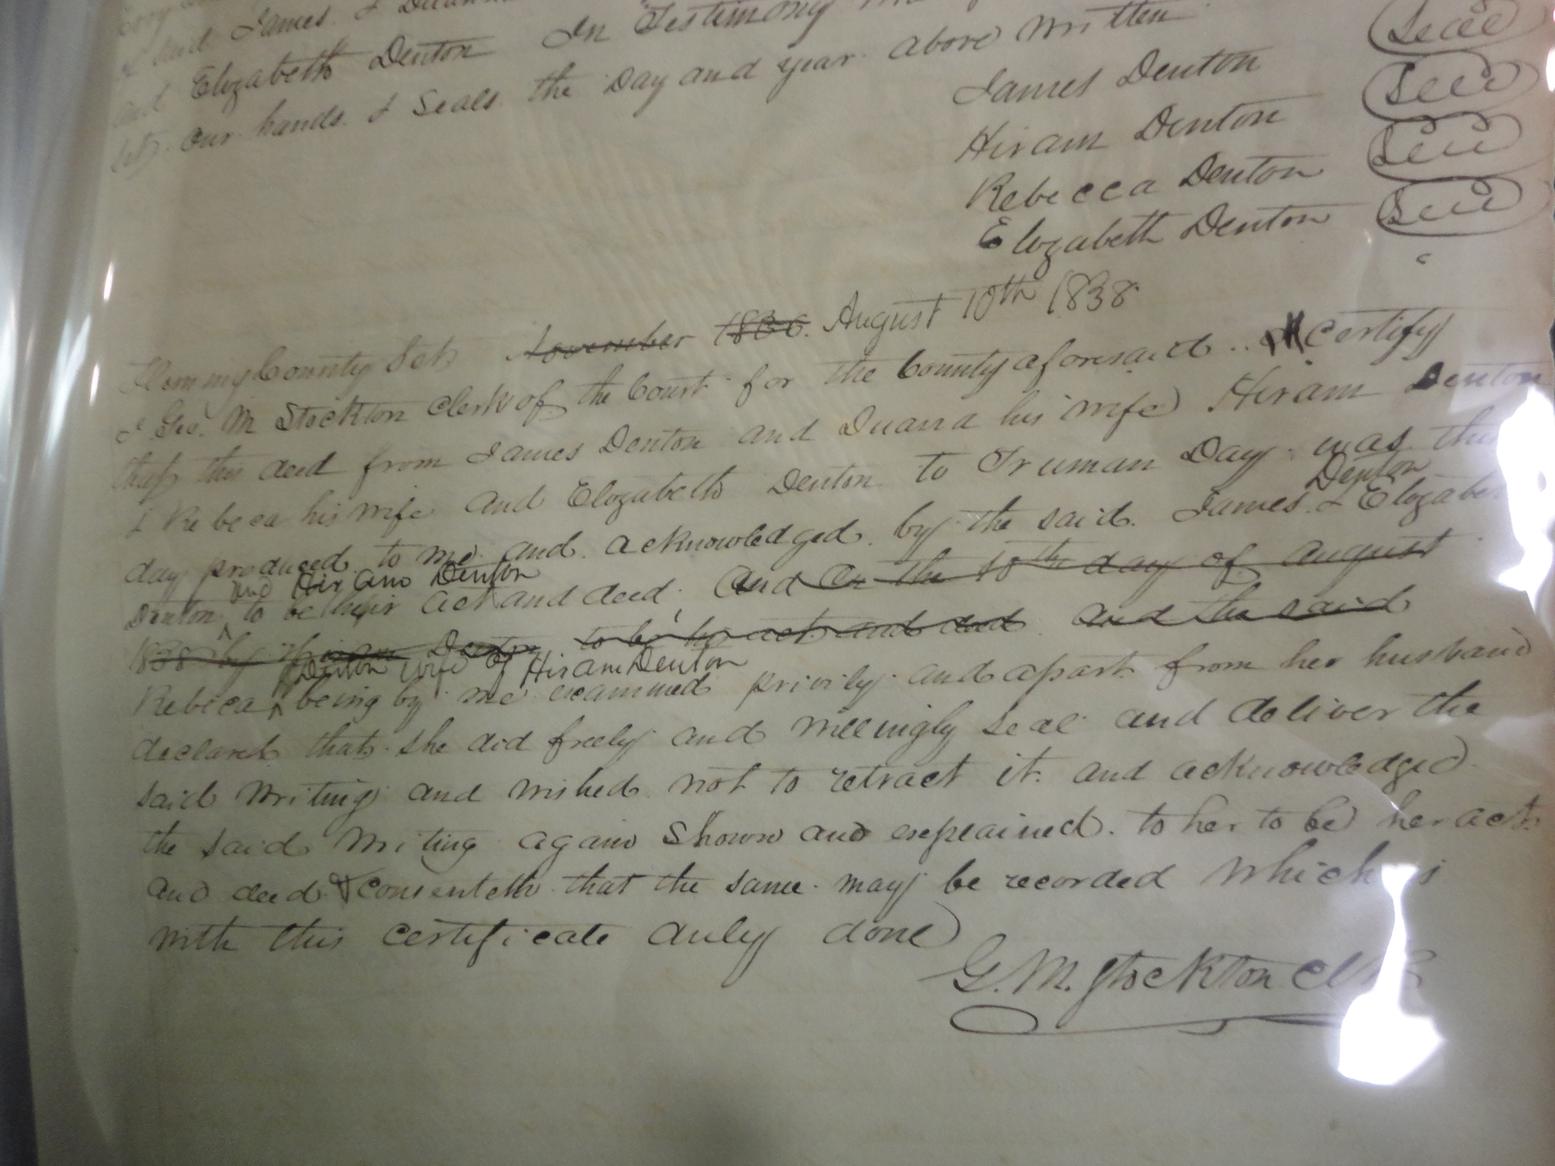 & said James & 
and Elizabeth Denton In Testimony
set our hands & Seals the Day and year above written
James Denton Seal
Hiram Denton Seal
Rebecca Denton Seal
Elizabeth Denton Seal
Flemming County Sct November 1836. August 10th 1838
I Geo. M Stockton Clerk of the Court for the County aforesaid .. Certify
that this deed from James Denton and Duana his wife Hiram Denton
& Rebeca his wife and Elizabeth Denton to Truman Day was this
Denton
day produced to me and acknowledged by the said James & Elizabeth
and Hiram Denton
Denton to be their act and deed, and on the 10th day of August
1838 by Hiram Denton to be his act and deed and the said
Denton wife of Hiram Denton
Rebeca being by me examined privily and apart from her husband
declared that she did freely and willingly seal and deliver the
said writing and wished not to retract it and acknowledged
the said writing again shown and explained to her to be her act
and deed & consenteth that the same may be recorded which is
with this certificate duly done
G. M. Stockton